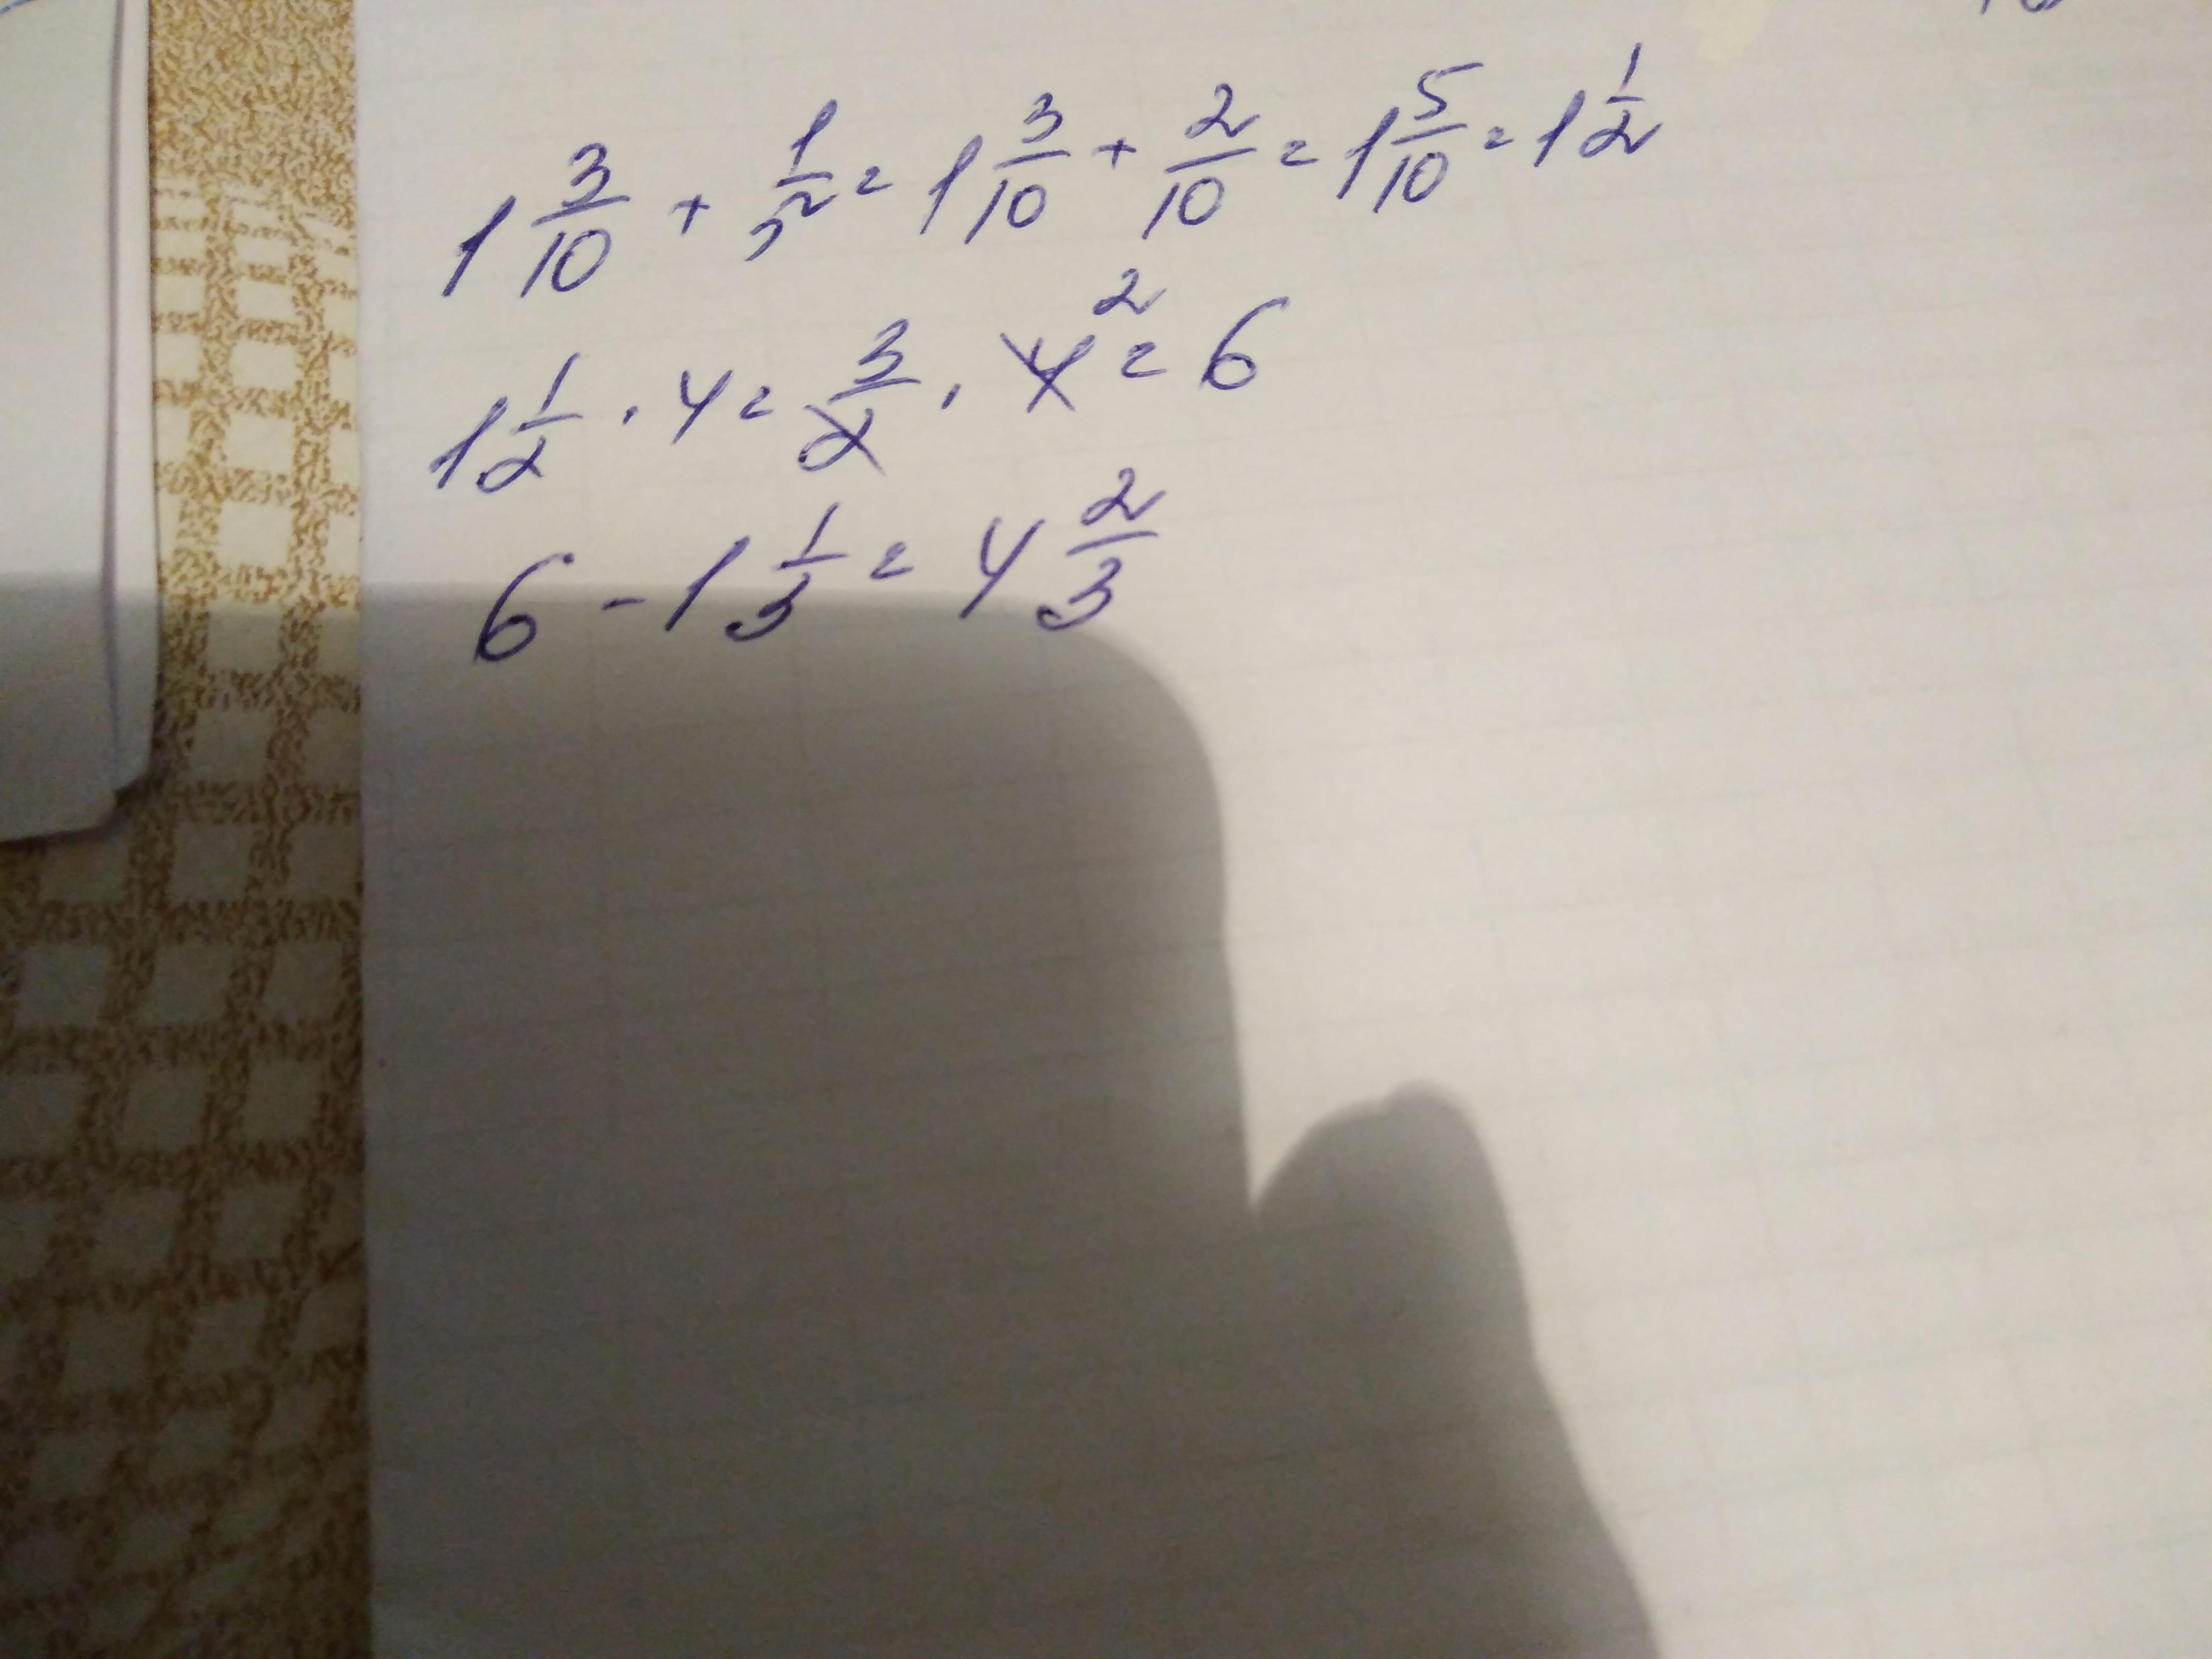 1 3/10 + 1/2 = 1 3/10 + 2/10 = 1 5/10 = 1 1/2
1 1/2 · 4 = 3/2 · 4 2 = 6
6 - 1 1/3 = 4 2/3